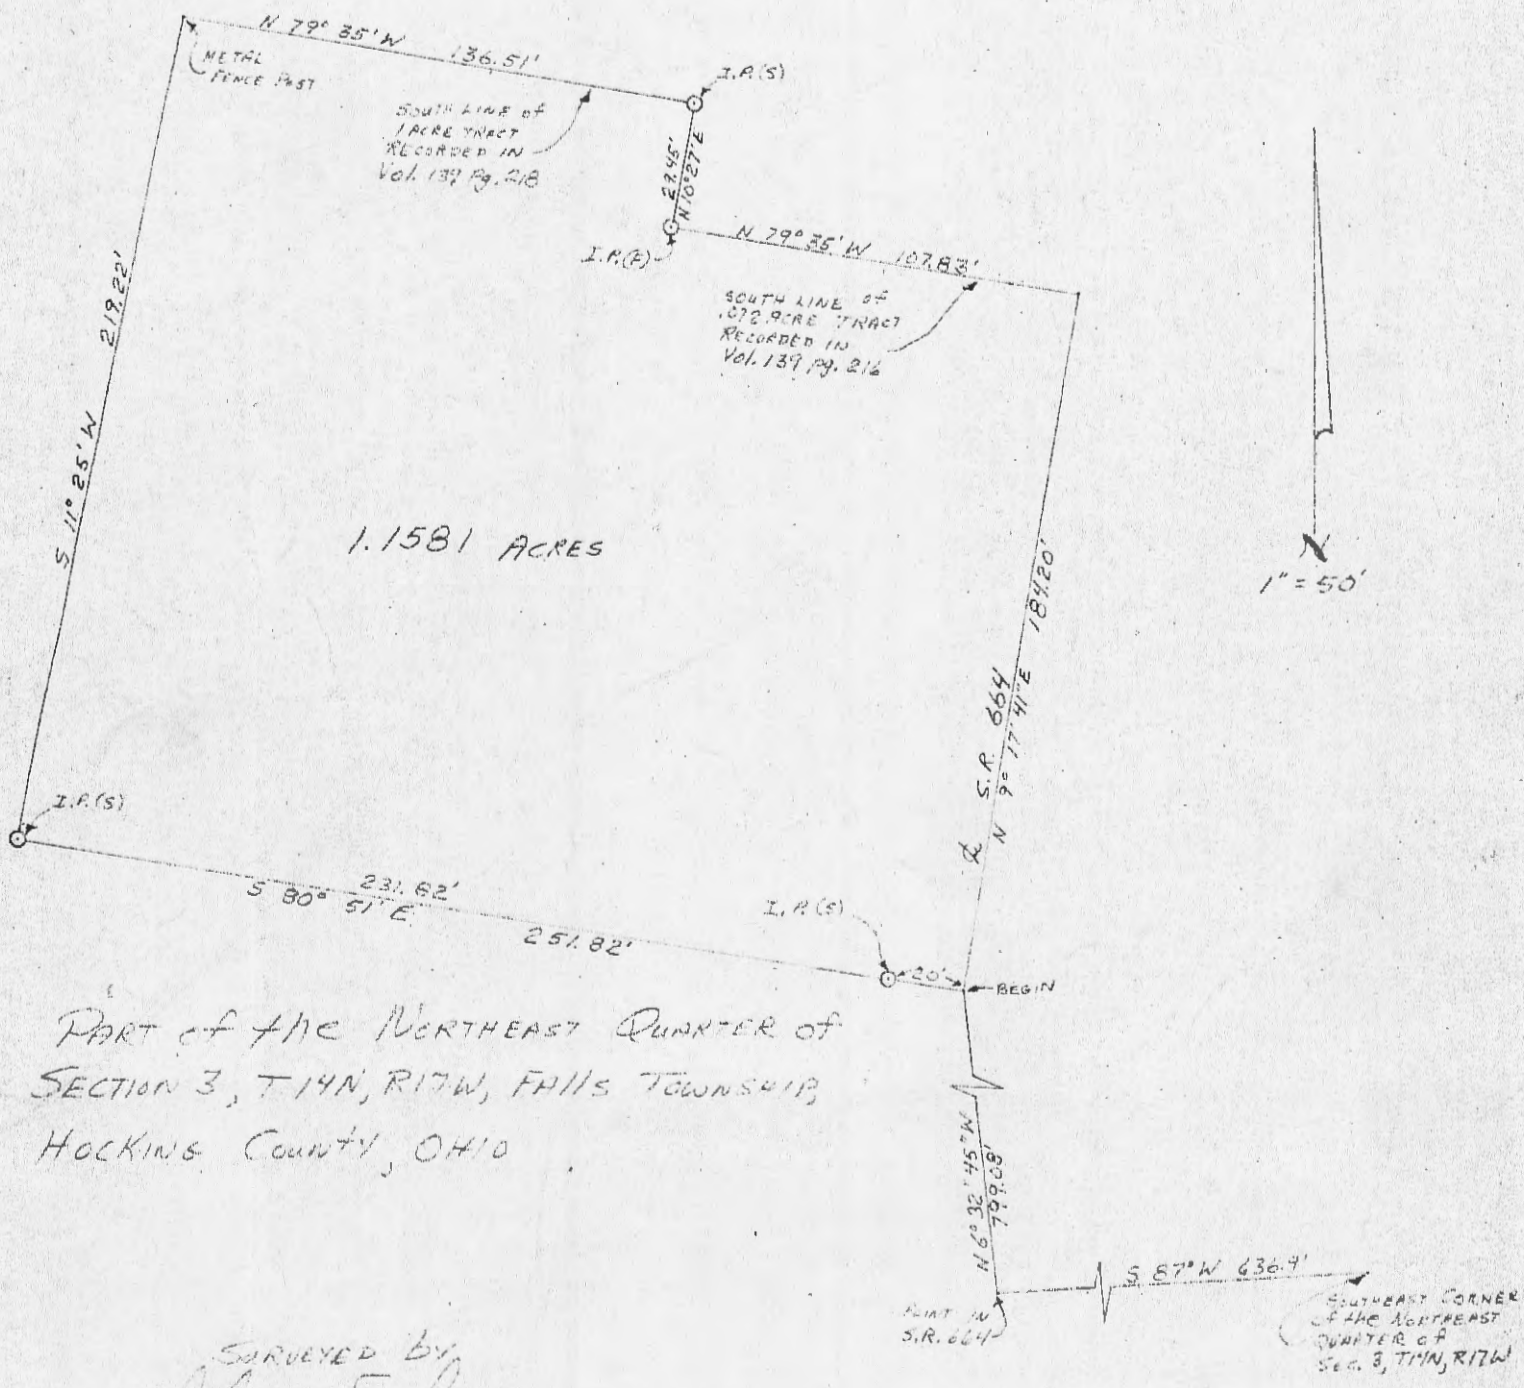 N 79° 35' W 136.51'
METAL
FENCE POST
I.P.(S)
SOUTH LINE of
1 ACRE TRACT
RECORDED IN
Vol. 139 Pg. 218
N 10° 27' E
I.P.(F)
N 79° 35' W 107.83'
SOUTH LINE of
.072 ACRE TRACT
RECORDED IN
Vol. 139 Pg. 216
S 11° 25' W 219.22'
1.1581 ACRES
N
1" = 50'
℄ S.R. 664
N 9° 17' 41" E 184.20'
I.P.(S)
231.82'
S 80° 51' E
251.82'
I.P.(S)
20'
BEGIN
PART of the NORTHEAST QUARTER of
SECTION 3, T14N, R17W, FAlls TOWNSHIP,
HOCKING County, OHIO
N 6° 32' 45" W
799.08'
S 87° W 636.9'
POINT IN
S.R. 664
SOUTHEAST CORNER
of the NORTHEAST
QUARTER of
SEC. 3, T14N, R17W
SURVEYED by